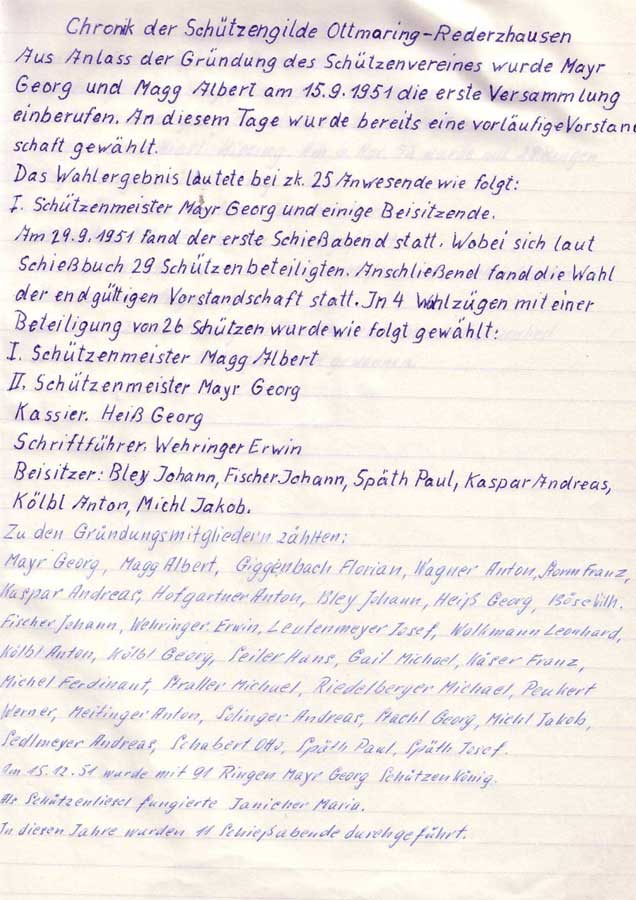 Chronik der Schützengilde Ottmaring-Rederzhausen
Aus Anlass der Gründung des Schützenvereines wurde Mayr
Georg und Magg Albert am 15.9.1951 die erste Versammlung
einberufen. An diesem Tage wurde bereits eine vorläufige Vorstand
schaft gewählt.
Das Wahlergebnis lautete bei zk. 25 Anwesende wie folgt:
I. Schützenmeister Mayr Georg und einige Beisitzende.
Am 29.9.1951 fand der erste Schießabend statt. Wobei sich laut
Schießbuch 29 Schützen beteiligten. Anschließend fand die Wahl
der endgültigen Vorstandschaft statt. In 4 Wahlzügen mit einer
Beteiligung von 26 Schützen wurde wie folgt gewählt:
I. Schützenmeister Magg Albert
II. Schützenmeister Mayr Georg
Kassier. Heiß Georg
Schriftführer. Wehringer Erwin
Beisitzer: Bley Johann, Fischer Johann, Späth Paul, Kaspar Andreas,
Kölbl Anton, Michl Jakob.
Zu den Gründungsmitgliedern zählten:
Mayr Georg, Magg Albert, Giggenbach Florian, Wagner Anton, Franz,
Kaspar Andreas, Hofgartner Anton, Bley Johann, Heiß Georg, Böse Wilh.
Fischer Johann, Wehringer Erwin, Leutenmeyer Josef, Wolkmann Leonhard,
Kölbl Anton, Kölbl Georg, Seiler Hans, Gail Michael, Käser Franz,
Michel Ferdinaut, Straller Michael, Riedelberger Michael, Peukert
Werner, Meitinger Anton, Solinger Andreas, Stachl Georg, Michl Jakob,
Sedlmeyer Andreas, Schabert Otto, Späth Paul, Späth Josef.
Am 15.12.51 wurde mit 91 Ringen Mayr Georg Schützenkönig.
Als Schützenliesel fungierte Janicher Maria.
In diesen Jahre wurden 11 Schießabende durchgeführt.